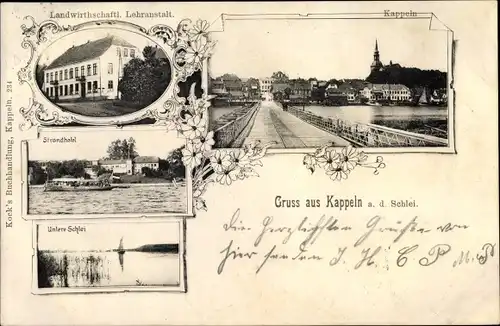 Landwirthschaftl. Lehranstalt.
Kappeln
Strandhotel
Untere Schlei
Koch's Buchhandlung, Kappeln. 234
Gruss aus Kappeln a. d. Schlei.
Die herzlichsten Grüße von
hier senden J. H. C P M. P